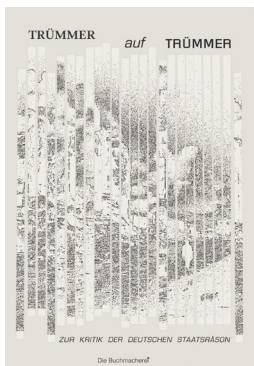 TRÜMMER auf TRÜMMER
ZUR KRITIK DER DEUTSCHEN STAATSRÄSON
Die Buchmacherei